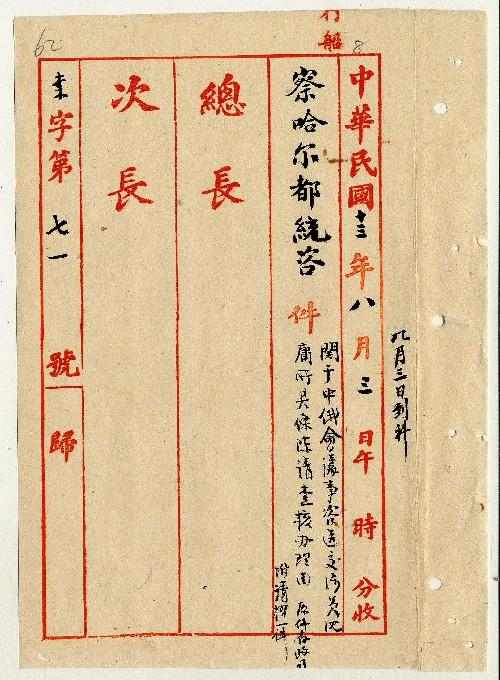 62
8
船
八月三日到科
中華民國十三年八月三日午 時 分收
察哈尔都統咨 件
関于中俄會議事咨送交涉員沈
廣所具條陳請查核办理由 原件存
附議
總長
次長
字第七一號 歸